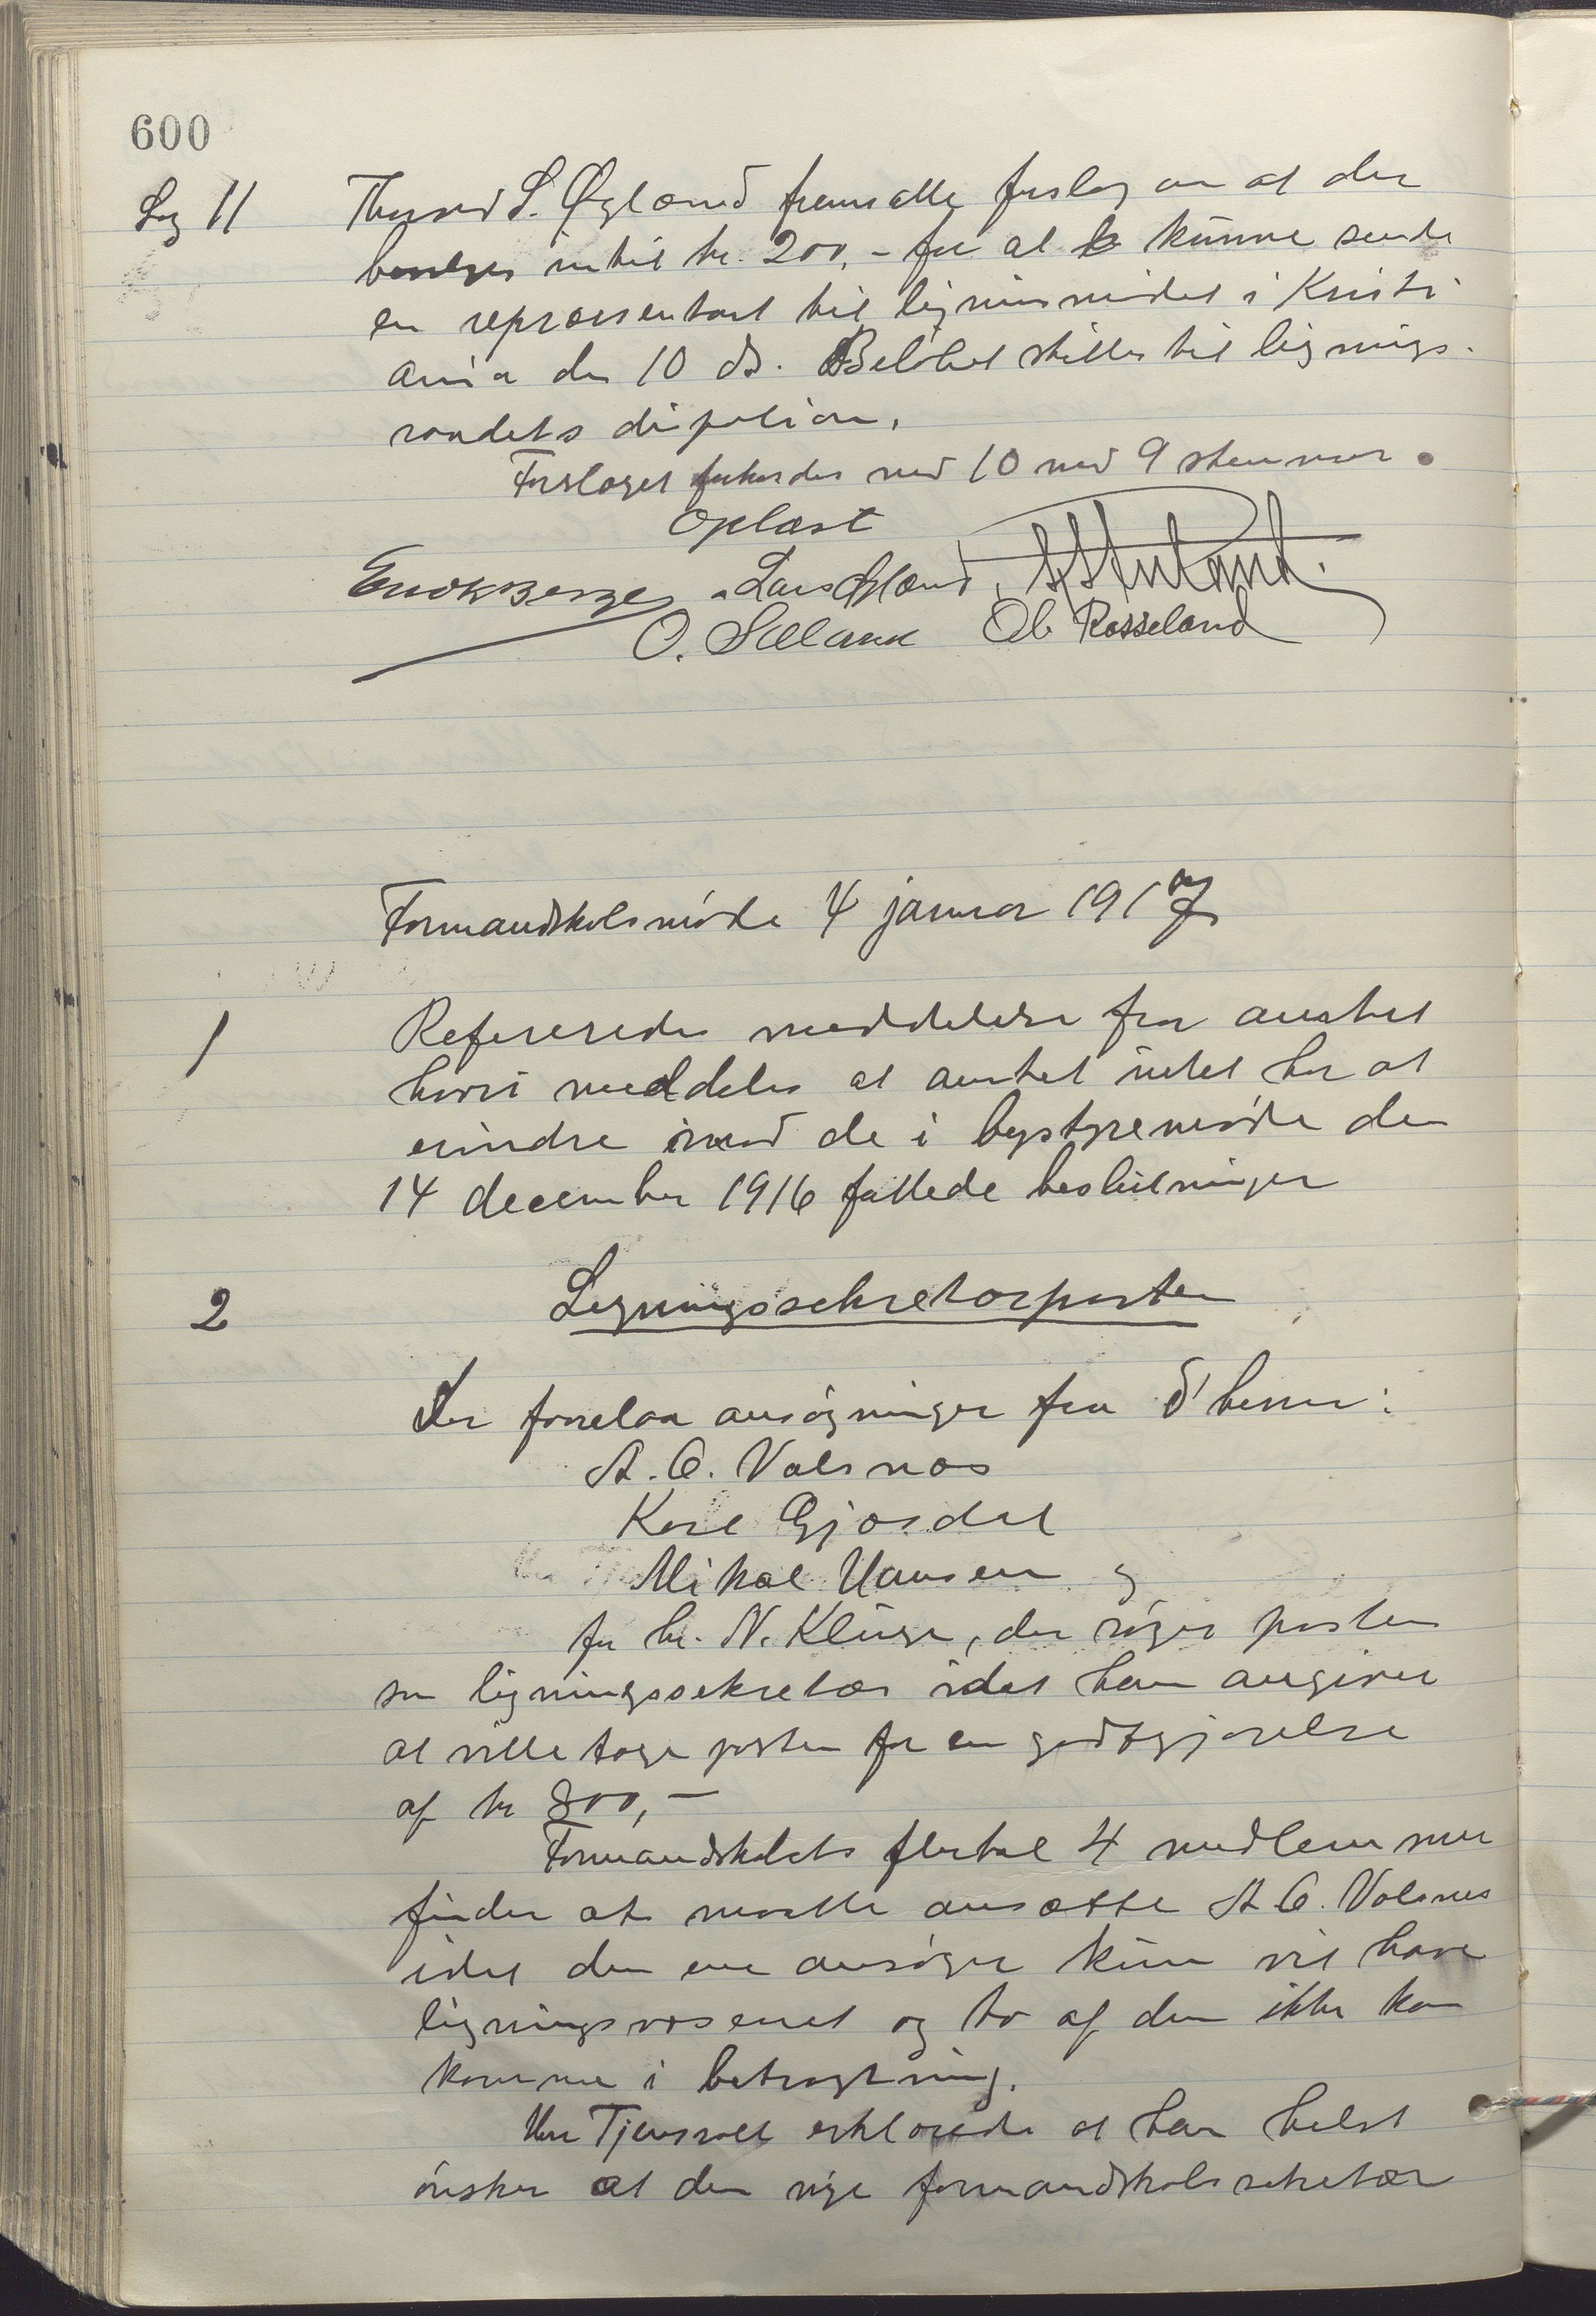 600
Sag 11 Thorvald S. Øglænd fremsatte forslag om at der
bevilges indtil kr. 200,- for at kunne sende
en repræsentant til ligningsmødet i Kristi
ania den 10 ds. Beløbet stilles til lignings-
raadets disposision.
Forslaget forkastes med 10 mod 9 stemmer.
Oplæst
Lars Øglænd
O. Sælland Ol. Rosseland
Formandskabsmøde 4 januar 1917
1 Refereredes meddelelse fra amtet
hvori meddeles at amtet intet har at
erindre imod de i bystyremøde den
14 december 1916 fattede beslutninger
2 Ligningssekretærposten
Der forelaa ansøgninger fra d'herrer:
A. C. Valsnæs
Karl Gjæsdal
Mikal Hansen og
fra hr. N. Kluge, der søger posten
som ligningssekretær idet han angiver
at ville tage posten for en godtgjørelse
af kr 800,-
Formandskabets flertal 4 medlemmer
finder at maatte ansætte A. C. Valsnes
idet den ene ansøger kun vil have
ligningsvæsenet og to af dem ikke kan
komme i betragtning.
Herr Tjensvoll erklærede at han helst
ønsker at den nye formandskabssekretær